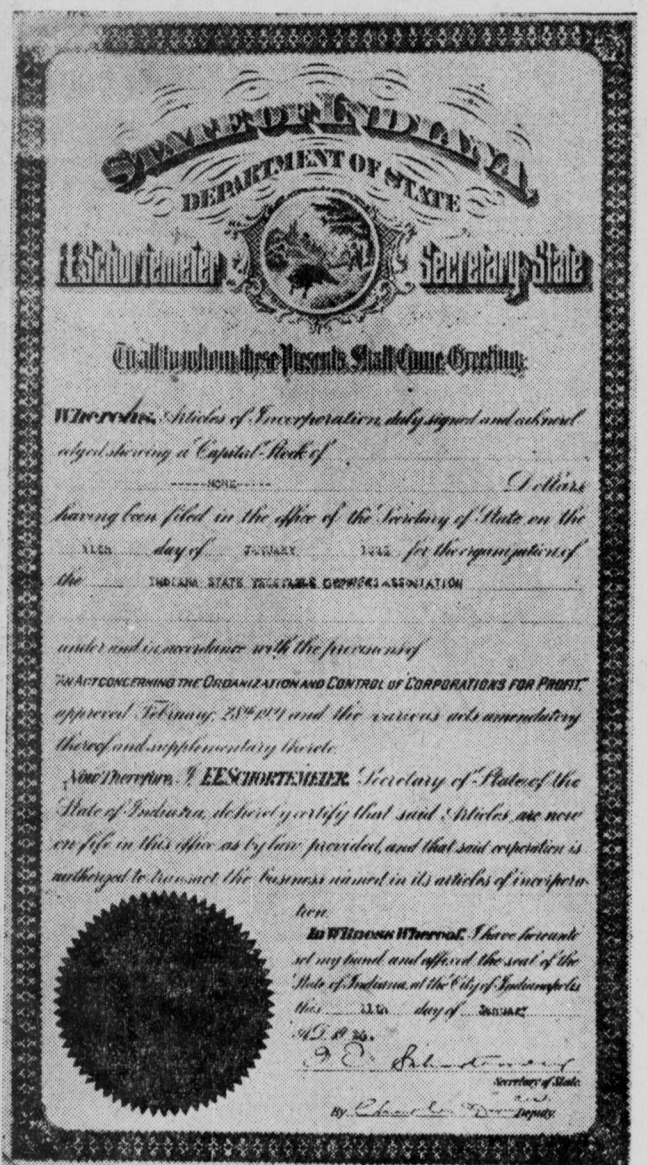 STATE OF INDIANA
DEPARTMENT OF STATE
F.E. Schortemeier Secretary of State
To all to whom these Presents Shall Come, Greeting:
Whereas, Articles of Incorporation, duly signed and acknowl
edged showing a Capital Stock of
-----NONE-----
Dollars
having been filed in the office of the Secretary of State on the
11th day of JANUARY for the organization of
the INDIANA STATE VEGETABLE GROWERS ASSOCIATION
under and in accordance with the provisions of
"AN ACT CONCERNING THE ORGANIZATION AND CONTROL OF CORPORATIONS FOR PROFIT,"
approved February, 28th 1921 and the various acts amendatory
thereof and supplementary thereto.
Now Therefore, I F.E. SCHORTEMEIER, Secretary of State of the
State of Indiana, do hereby certify that said Articles are now
on file in this office as by law provided, and that said corporation is
authorized to transact the business named in its articles of incorpora-
tion.
In Witness Whereof, I have hereunto
set my hand and affixed the seal of the
State of Indiana, at the City of Indianapolis
this 11th day of January
A.D. 19 26.
F. E. Schortemeier
Secretary of State.
By Deputy.